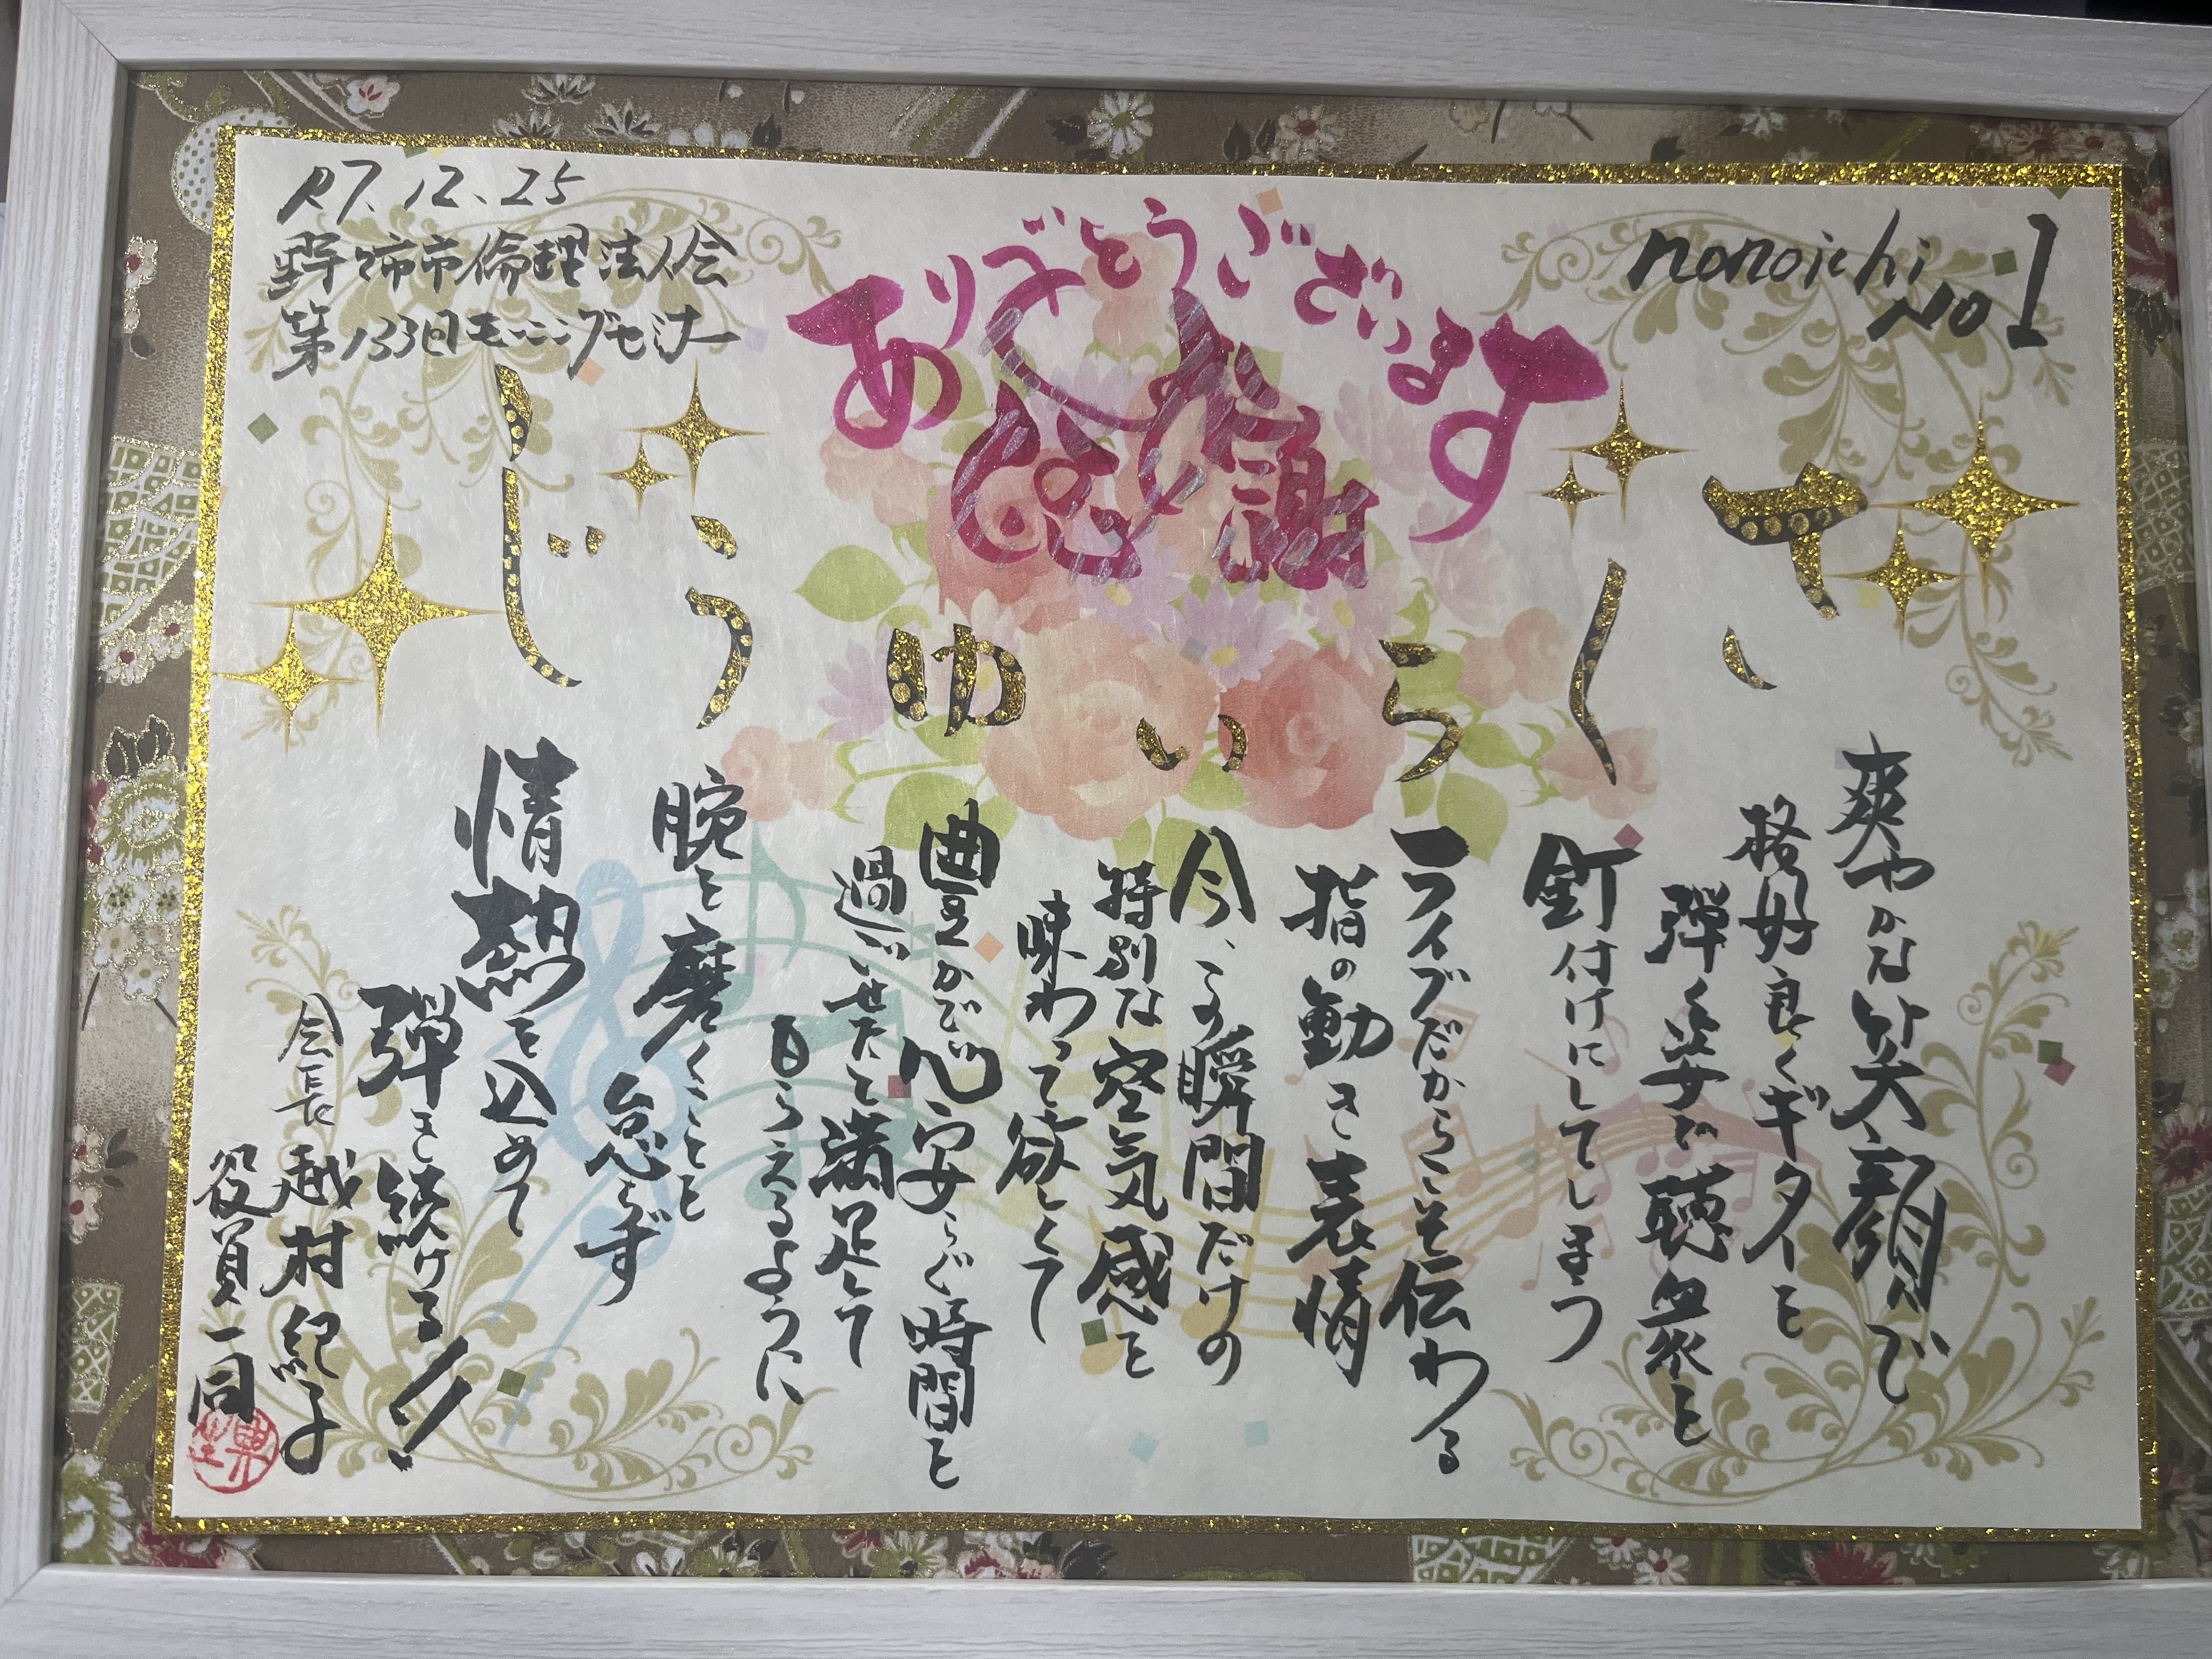 R7.12.25
野々市市倫理法人会
第133回モーニングセミナー
nonoichi
No 1
ありがとうございます
感謝
さいくらいゆうじ
爽やかな笑顔で
格好良くギターを
弾く姿が聴衆を
釘付けにしてしまう
ライブだからこそ伝わる
指の動き表情
今、この瞬間だけの
特別な空気感を
味わって欲しくて
豊かで心安らぐ時間を
過ごせたと満足して
もらえるように
腕を磨くことを
怠らず
情熱を込めて
弾き続ける!!
会長 越村紀子
役員一同